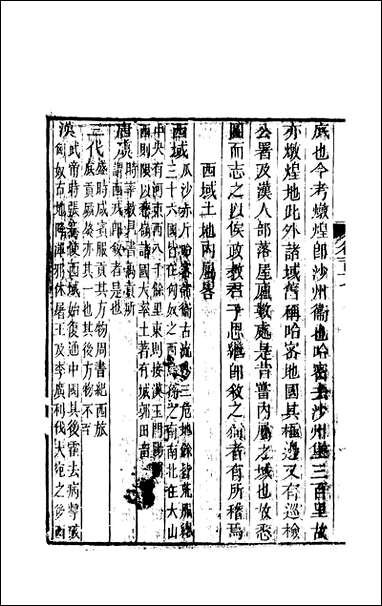 威也今考燉煌即沙州衞也哈密去沙州堡三百里故
亦燉煌地此外諸域舊稱哈密地國其極邊又有巡檢
公署及漢人部落屋廬數處是昔嘗內屬之域也故悉
圖而志之以俟政教君子思繼即敘之洵者有所稽焉
西域土地內屬畧
西域瓜沙亦斤哈密衞古流三危地餘皆荒服總
三十六國皆在匈奴之西烏孫之南南北在大山
中央有河東西六千餘里東則接漢玉門陽
西則限以葱嶺諸國大率土著有城郭田畜
唐虞時聲教具書禹貢所
謂西戎即敘者是也
三代盛時咸賓服貢其方物周書紀西旅
底貢厥獒亦其一也其後方物不
漢武帝時張騫使西域始復通中國其後霍去病擊破
匈奴右地降渾邪休屠王及李廣利伐大宛之後西